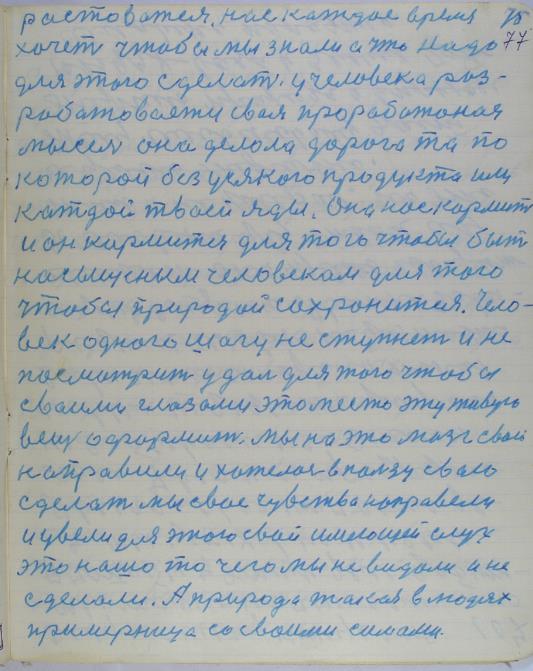 ростоватся, нас каждое время 75
хочет чтобы мы знали а что надо 77
для этого сделат. у человека роз-
роботоваети своя проработоная
мысля она делола дорога та по
которой без усякого продукта или
каждой твоей яды. Она нас кормит
и он кормится для того чтобы быт
насыщсным человекам для того
чтобы природой сохронится. Чело-
век одного шагу не ступнет и не
посмотрит у дал для того чтобы
своими глозоми это место эту живую
вещ оформит. мы на это мозг свой
направили и хотелос в ползу свого
сделат мы свое чувства направели
и увели для этого свой имеющей слух
это нашо то чего мы не видали и не
сделоли. А природа такая в людях
примерница со своими силами.